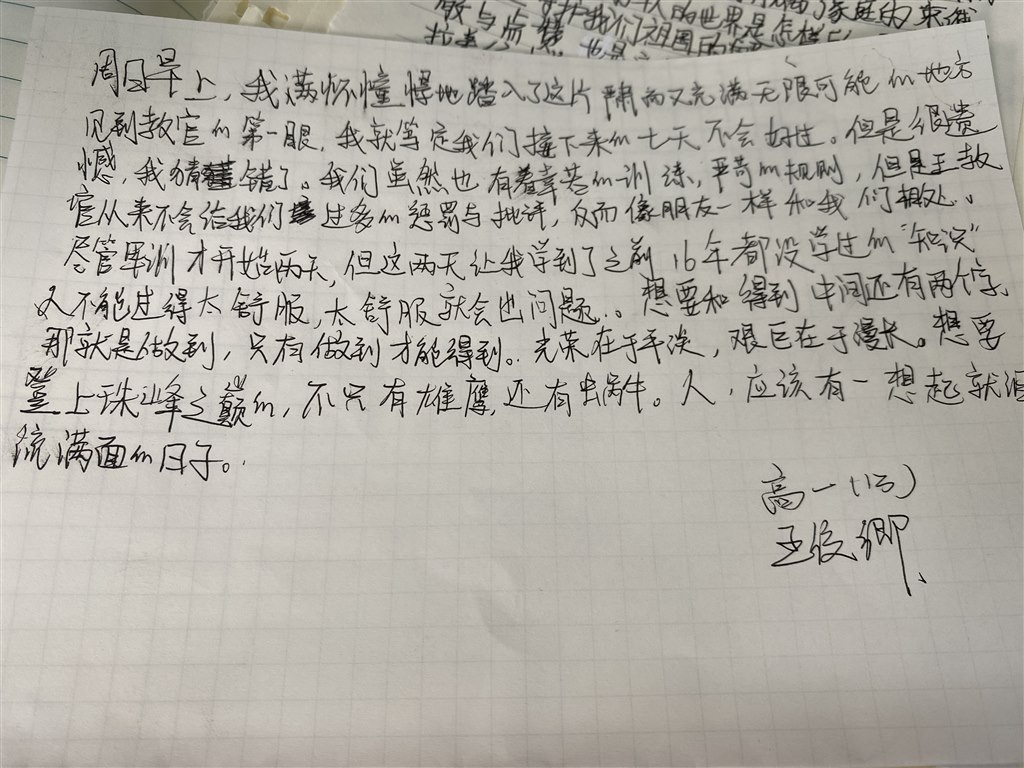 周日早上，我满怀憧憬地踏入了这片肃而又充满无限可能的地方
见到教官的第一眼，我就笃定我们接下来的七天不会好过。但是很遗
憾，我猜错了。我们虽然也有着辛苦的训练，严苛的规则，但是王教
官从来不会给我们过多的惩罚与批评，反而像朋友一样和我们相处。
尽管军训才开始两天，但这两天让我学到了之前16年都没学过的“知识”
人不能过得太舒服，太舒服就会出问题。想要和得到中间还有两个字，
那就是做到，只有做到才能得到。光荣在于平淡，艰巨在于漫长。想要
登上珠峰之巅的，不只有雄鹰，还有蜗牛。人，应该有一想起就泪
流满面的日子。
高一(13)
王俊卿